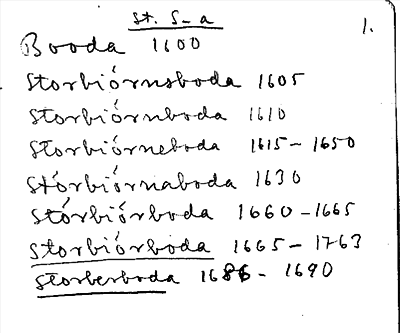 St. S-a
1.
Booda 1600
Storbiórnsboda 1605
Storbiórnboda 1610
Storbiórneboda 1615-1650
Stórbiórnaboda 1630
Stórbiórboda 1660-1665
Storbiórboda 1665-1763
Storberboda 1686-1690